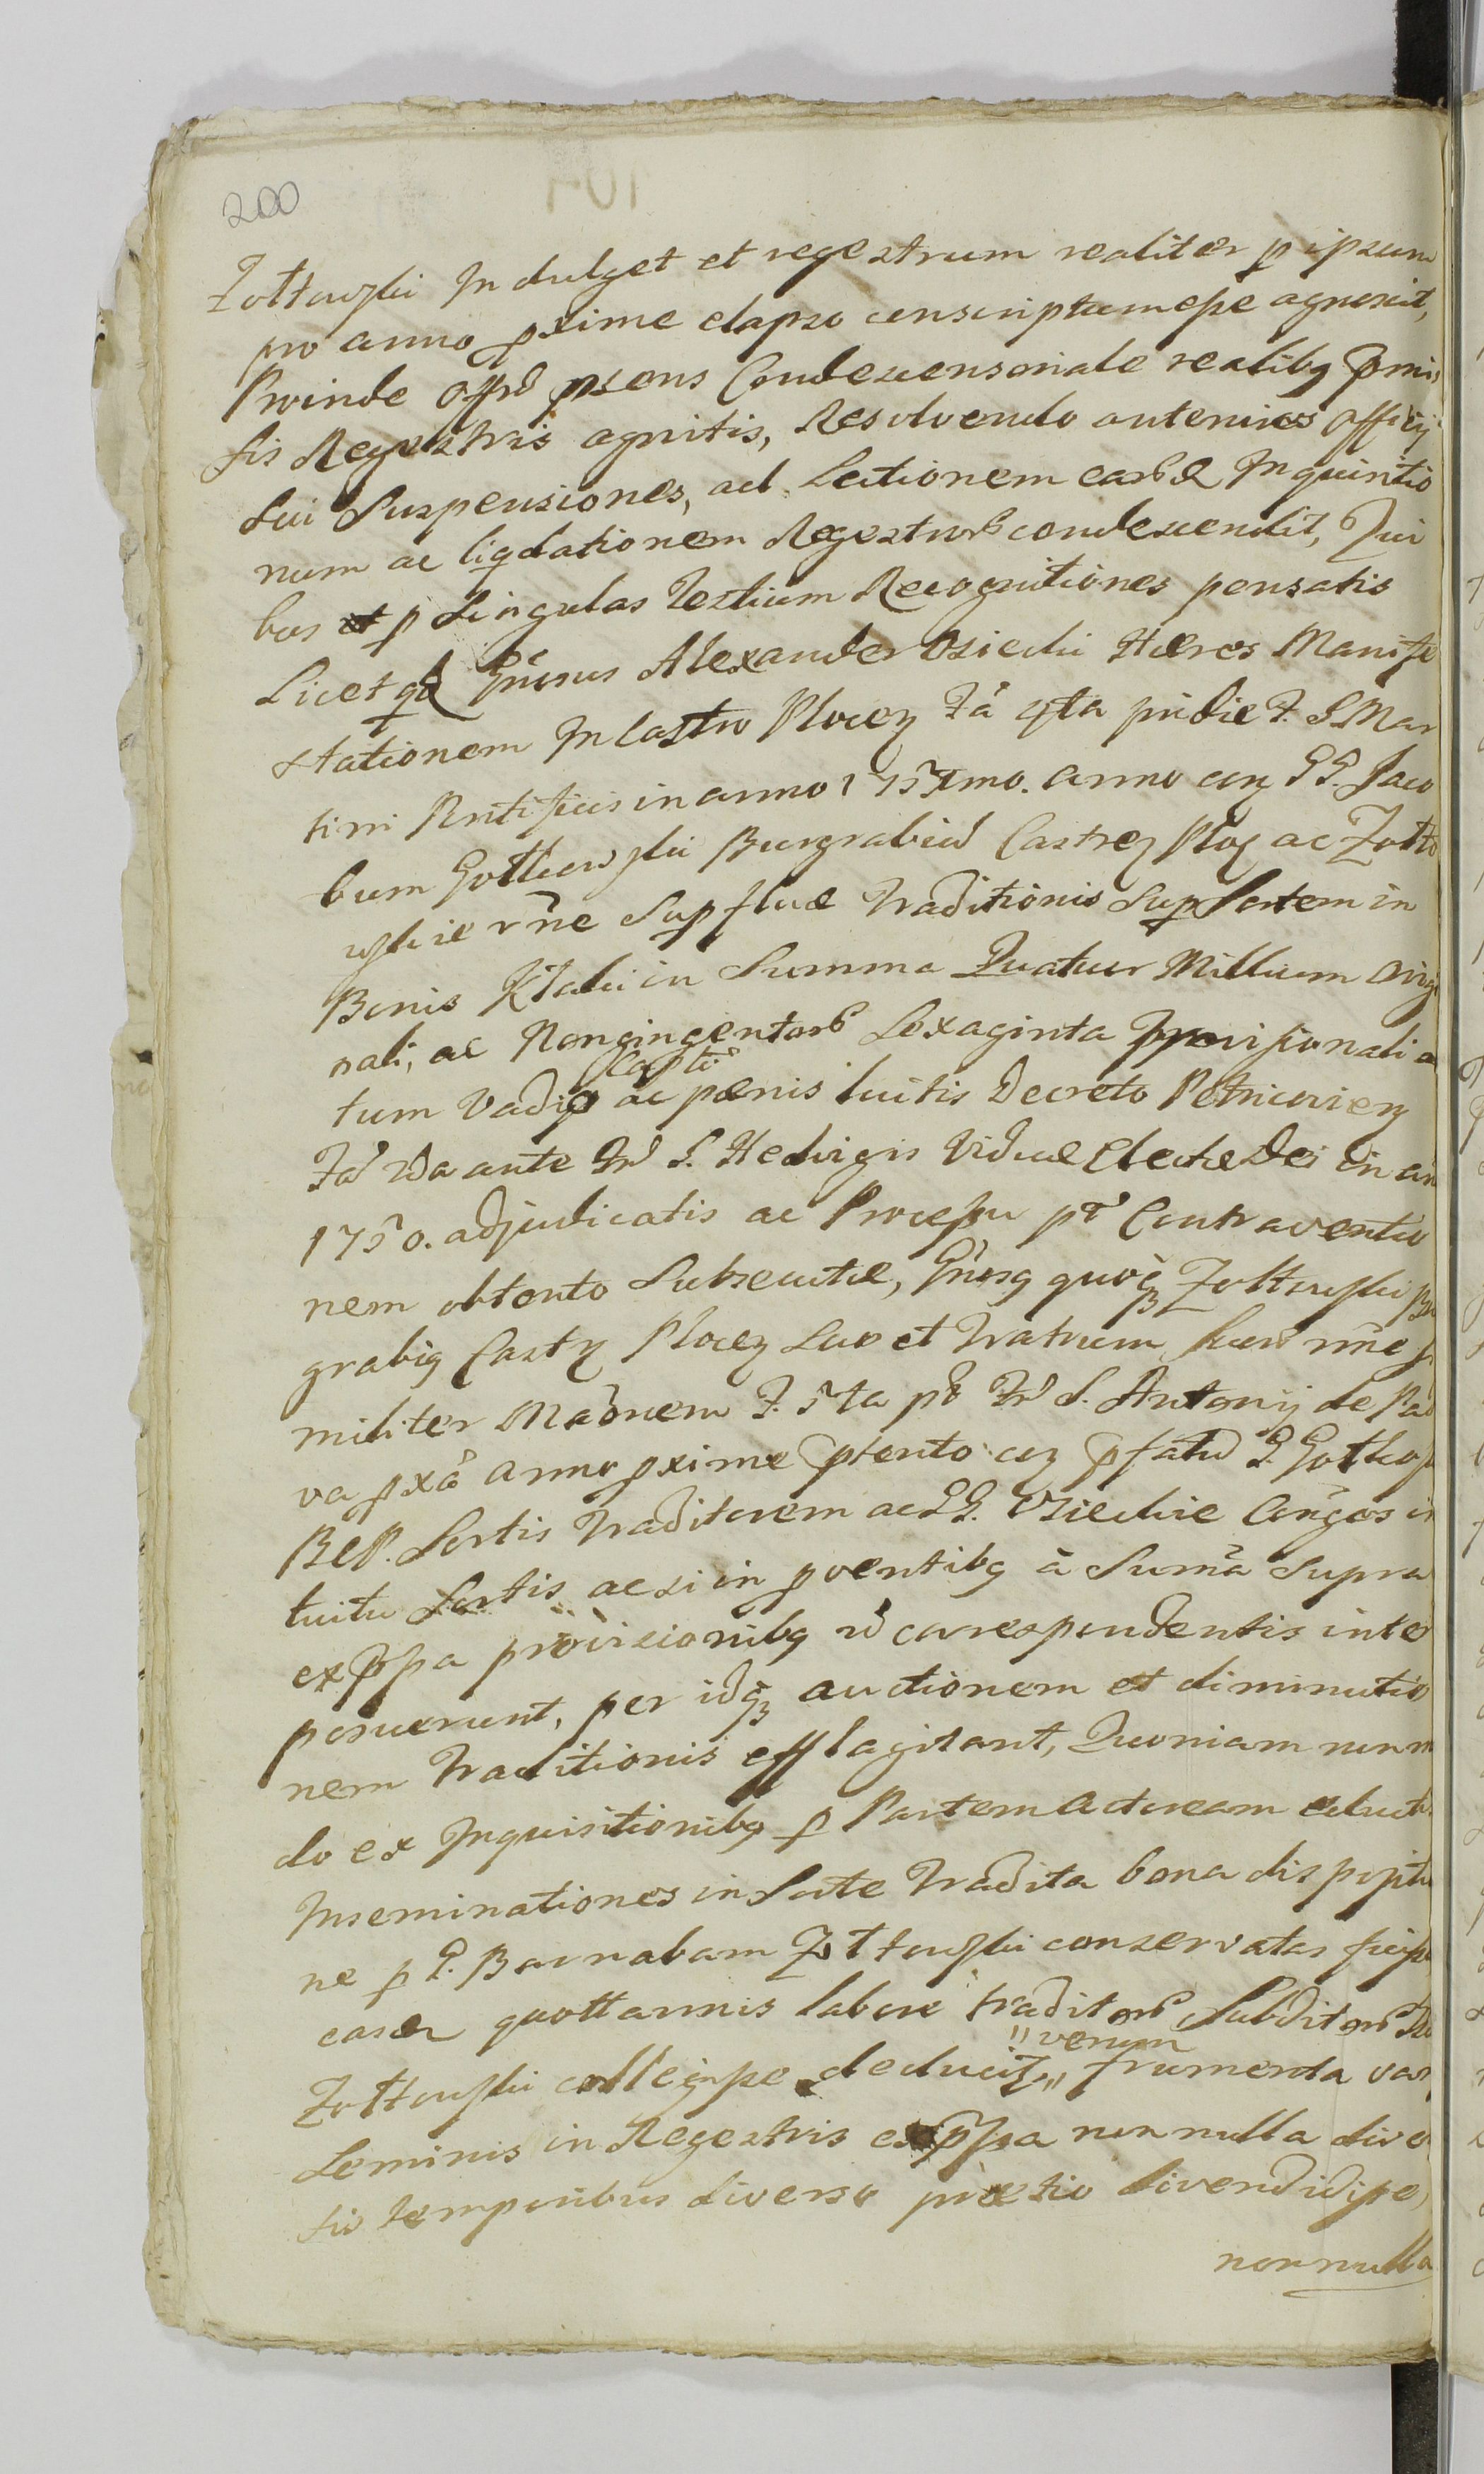 200
Zołtowski Indulget et regestrum realiter p ipsum
pro anno pxime elapso conscriptum esse agnoscit,
Proinde Offm pnsens Condescensoriale realibq pmis
sis Regestris agnitis, Resolvendo anteriores Officij
sui Suspensiones, ad Lectionem earum Inquisitio
num ac liqdationem Regestrorum condescendit, Qui
bus p Singulas Testium Recognitiones pensatis
Licet qd Gnosus Alexander Osiecki Hæres Manife
stationem In Castro Plocen Fa 4ta pridie F. S. Mar
tini Pontificis in anno 175 mo. anno con GG. Jaco
bum Gotkowski Burgrabium Castren Ploc ac Zołto
wskie rne Supfluæ Traditionis Sup Sortem in
Bonis Ktalii in Summa Quatuor Millium Origi
nali, ac Nongingentorum Sexaginta Provisionali a
tum Vadio ac pænis luitis Decreto Petricovien
Fa 2da ante Fm S. Hedvigis Viduæ Electæ Dei in an
1750. adjudicatis ac Processu pt Contraventio
nem obtento Subsecutæ, Gnosq quoq Zołtowski Bu
grabiq Castr Plocen Suo et Fratrum suorum nne si
militer Maonem F. 5ta pt Fm S. Antonij de Pad
va pxa anno pxime ptento con pfatum G. Gotkows
BCP. Sortis Traditorem ac GG. Osieckie Congos in
tuitu Sortis ac si in pventibq à Suma Supra
expssa provisionibq no correspondentis inter
posuerunt, per idq auctionem et diminutio
nem Traditionis efflagitant, Quoniam nonm
do ex Inquisitionibq p Partem Actoream educt
Inseminationes in Sorte Tradita bona dispositio
ne p G. Barnabam Zołtowski conservatas fuisse
easq quottannis labore traditorum Subditorum
Zołtowski collegisse deducit, " verum " frumenta var
Seminis in Regestris expssa nonnulla diver
sis temporibus diverso prætio divendidisse,
nonnulla